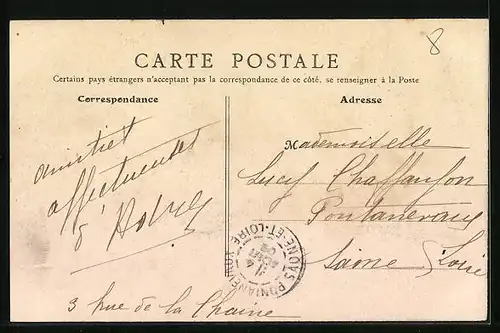 8
CARTE POSTALE
Certains pays étrangers n'acceptant pas la correspondance de ce côté, se renseigner à la Poste
Correspondance
Adresse
amitiés
affectueuses
Mademoiselle
Lucy Chaffanjon
Pontanevaux
Saône & Loire
PONTANEVAUX
SAONE-ET-LOIRE
3 Rue de la Chaine